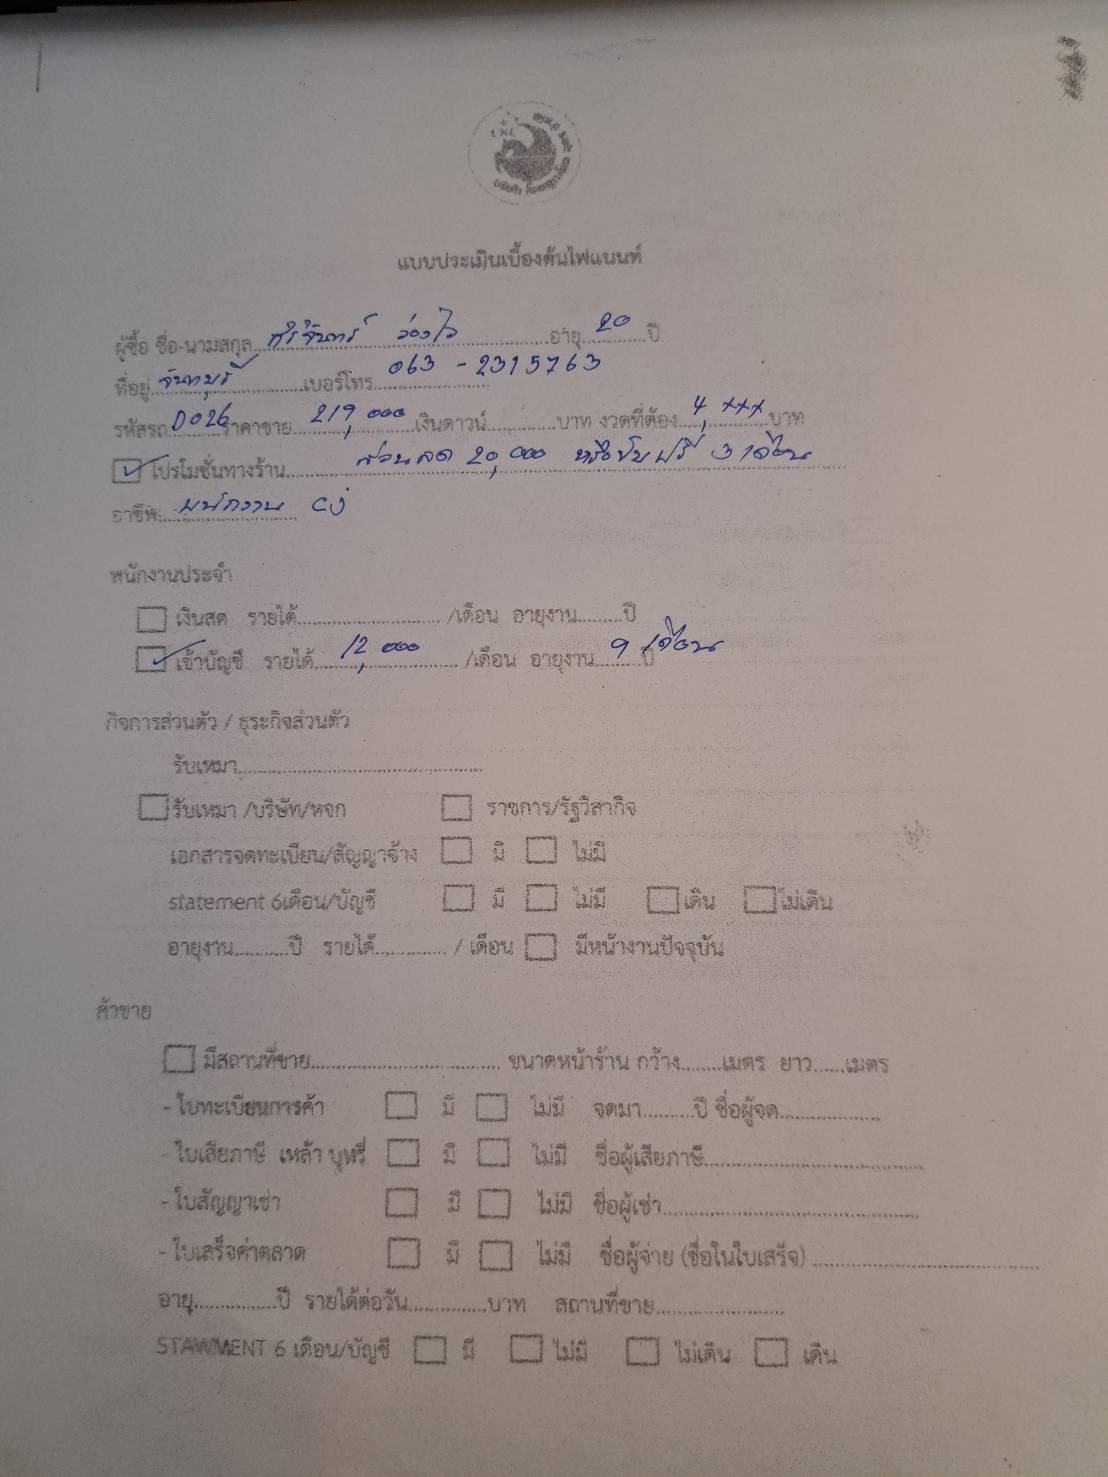 CKC
แบบประเมินเบื้องต้นไฟแนนท์
ผู้ซื้อ ชื่อ-นามสกุล ศิริจันทร์ ว่องไว อายุ 20 ปี
ที่อยู่ จันทบุรี เบอร์โทร 063 - 2315763
รหัสรถ D026 ราคาขาย 219,000 เงินดาวน์ บาท งวดที่ต้อง 4,xxx บาท
โปรโมชั่นทางร้าน ส่วนลด 20,000 หรือขับฟรี 3 เดือน
อาชีพ พนักงาน CJ
พนักงานประจำ
เงินสด รายได้ /เดือน อายุงาน ปี
เข้าบัญชี รายได้ 12,000 /เดือน อายุงาน 9 เดือน ปี
กิจการส่วนตัว / ธุระกิจส่วนตัว
รับเหมา
รับเหมา /บริษัท/หจก ราชการ/รัฐวิสากิจ
เอกสารจดทะเบียน/สัญญาจ้าง มี ไม่มี
statement 6เดือน/บัญชี มี ไม่มี เดิน ไม่เดิน
อายุงาน ปี รายได้ / เดือน มีหน้างานปัจจุบัน
ค้าขาย
มีสถานที่ขาย ขนาดหน้าร้าน กว้าง เมตร ยาว เมตร
- ใบทะเบียนการค้า มี ไม่มี จดมา ปี ชื่อผู้จด
- ใบเสียภาษี เหล้า บุหรี่ มี ไม่มี ชื่อผู้เสียภาษี
- ใบสัญญาเช่า มี ไม่มี ชื่อผู้เช่า
- ใบเสร็จค่าตลาด มี ไม่มี ชื่อผู้จ่าย (ชื่อในใบเสร็จ)
อายุ ปี รายได้ต่อวัน บาท สถานที่ขาย
STAWMENT 6 เดือน/บัญชี มี ไม่มี ไม่เดิน เดิน